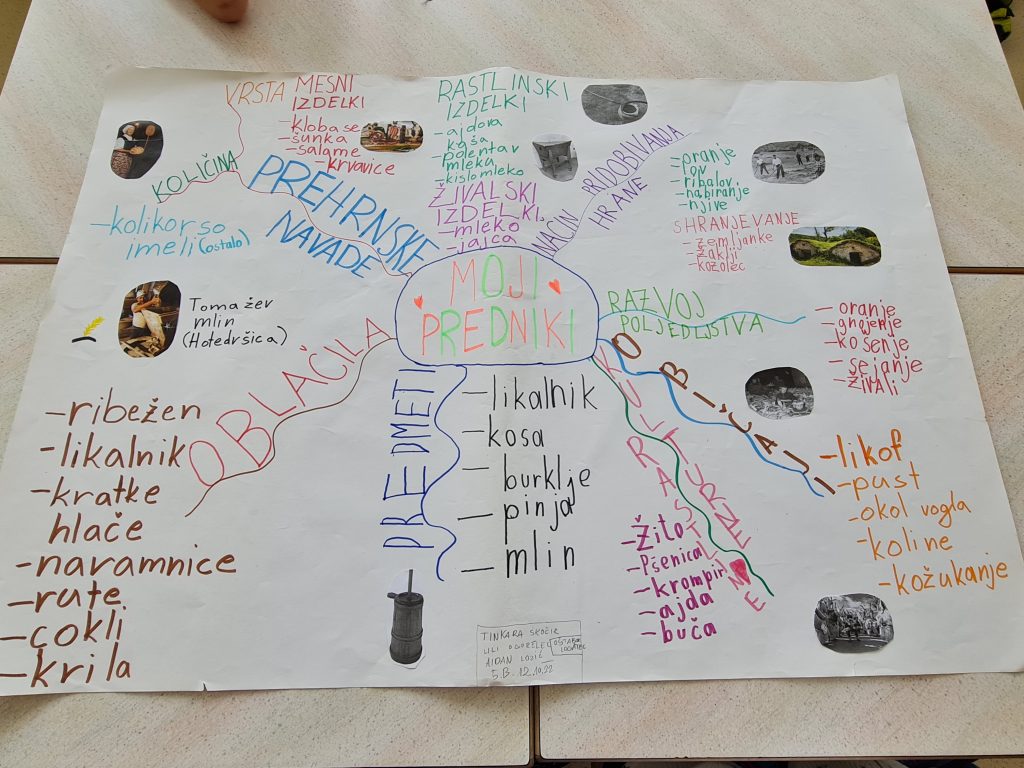 VRSTA
MESNI
IZDELKI
-klobase
-šunka
-salame
-krvavice
RASTLINSKI
IZDELKI
-ajdova
kaša
-polenta v
mleku
-kislo mleko
ŽIVALSKI
IZDELKI
-mleko
-jajca
KOLIČINA
PREHRNSKE
NAVADE
-kolikor so
imeli (ostalo)
NAČIN PRIDOBIVANJA
HRANE
-pranje
-ribolov
-nabiranje
-njive
SHRANJEVANJE
-zemljanke
-žaklji
-kozolec
MOJI
PREDNIKI
Tomažev
mlin
(Hotedršica)
RAZVOJ
POLJEDELJSTVA
-oranje
-gnojenje
-košenje
-sejanje
-živali
OBLAČILA
-ribežen
-likalnik
-kratke
hlače
-naramnice
-rute
-cokli
-krila
PREDMETI
-likalnik
-kosa
-burklje
-pinja
-mlin
KULTURNE
RASTLINE
-žito
-Pšenica
-krompir
-ajda
-buča
OBIČAJI
-likof
-pust
-okol vogla
-koline
-kožukanje
TINKARA SKOČIR
LILI
AIDAN LOJIĆ
5.B 12.10.22